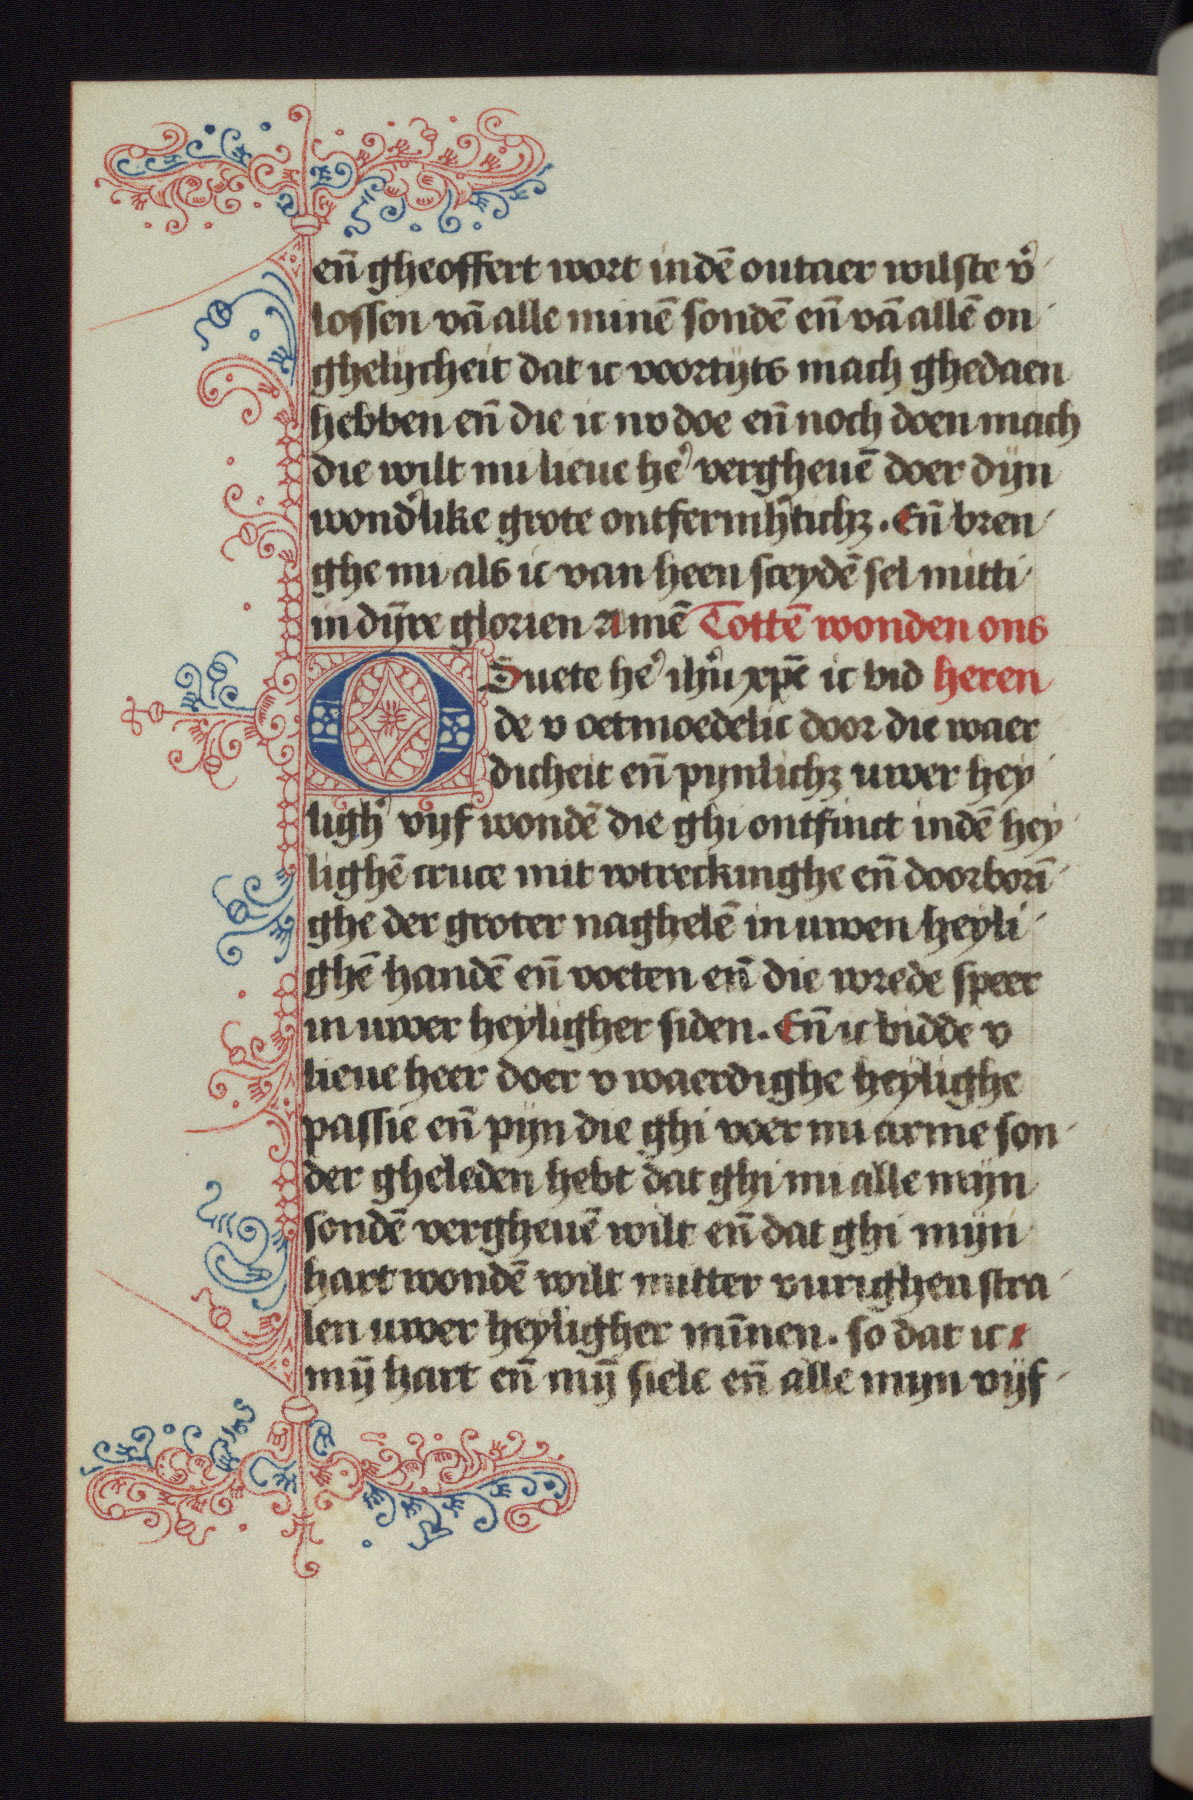 en̄ gheoffert wort indē outaer wilste v̾
lossen vā alle minē sondē en̄ vā allē on
ghelijcheit dat ic voortijts mach ghedaen
hebben en̄ die ic nv doe en̄ noch doen mach
die wilt mi lieue he᾽ vergheuē doer dijn
wond᾽like grote ontfermh̄tichꝫ. En̄ bren
ghe mi als ic van heen sceydē sel mitti
in dȳre glorien Amē Totten̄ wonden ons
O Suete he᾽ ihū xpē ic bid heren
de v oetmoedelic door die waer
dicheit en̄ pijnlichꝫ uwer hey
ligh᾽ vijf wondē die ghi ontfinct indē hey
lighē cruce mit wtreckinghe en̄ doorborī
ghe der groter naghelē in uwen heyli
ghē handē en̄ voeten en̄ die wrede speer
in uwer heyligher siden. En̄ ic bidde v
lieue heer doer v waerdighe heylighe
passie en̄ pijn die ghi voer mi arme son
der gheleden hebt dat ghi mi alle mijn
sondē vergheuē wilt en̄ dat ghi mijn
hart wondē wilt mitter vurighen stra
len uwer heyligher mīnen. so dat ic
mij̄ hart en̄ mij̄ siele en̄ alle mijn vijf